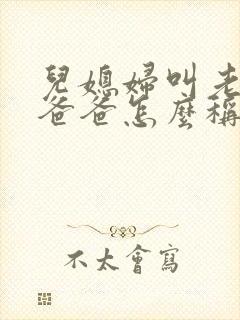 兒媳婦叫老
爸爸怎麼稱
不太會寫